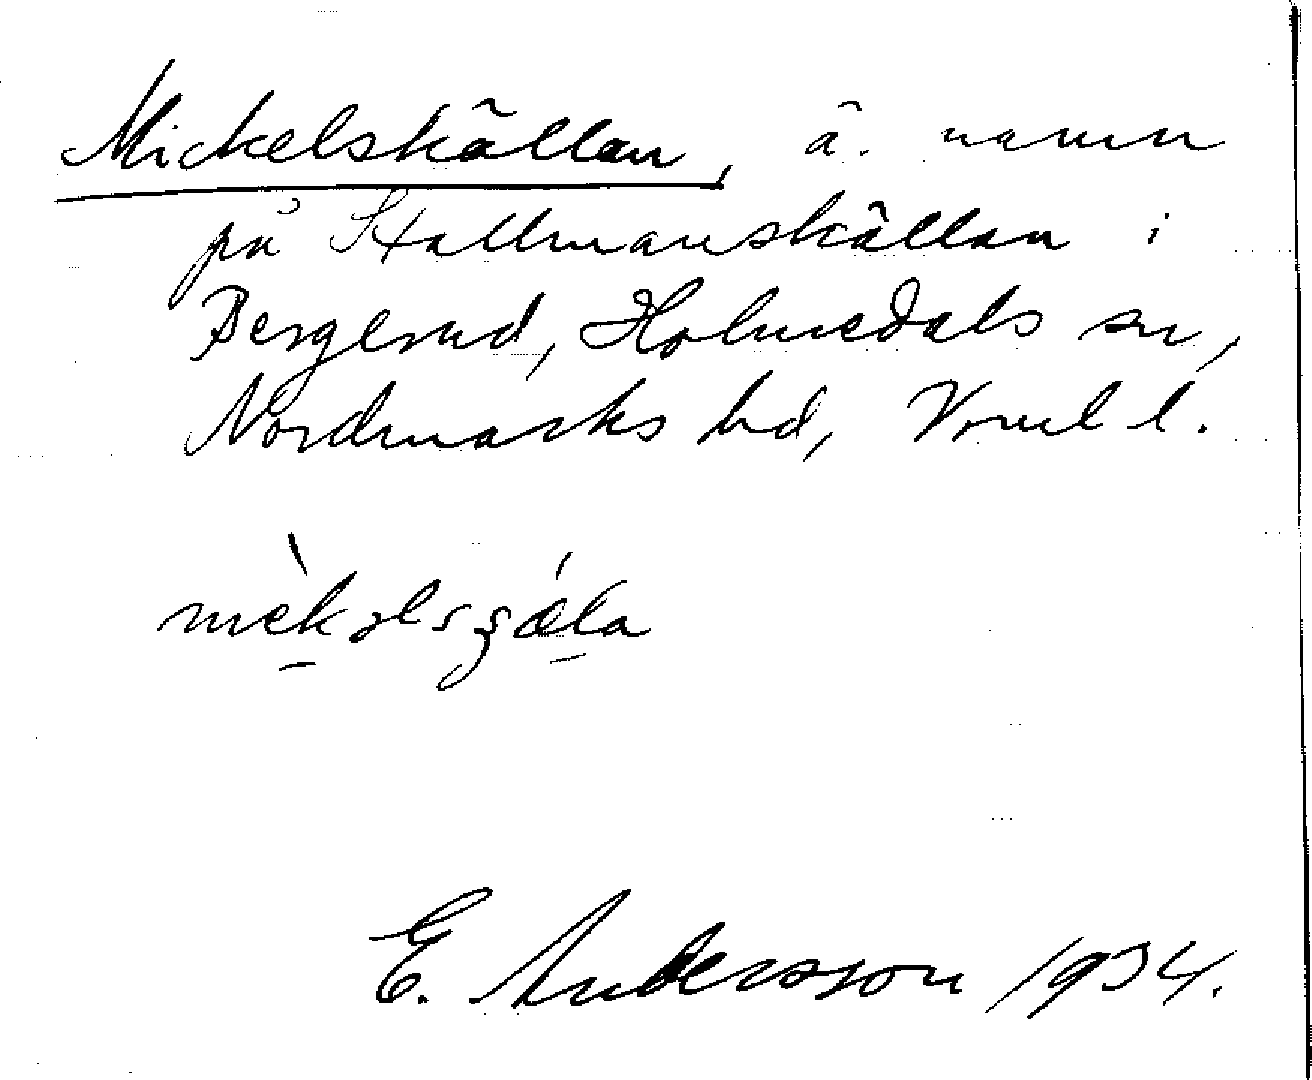 Mickelskällan, ä. namn
på Stallmanskällan i
Bergerud, Holmedals sn,
Nordmarks hd, Vrml l.
E. Andersson 1934.